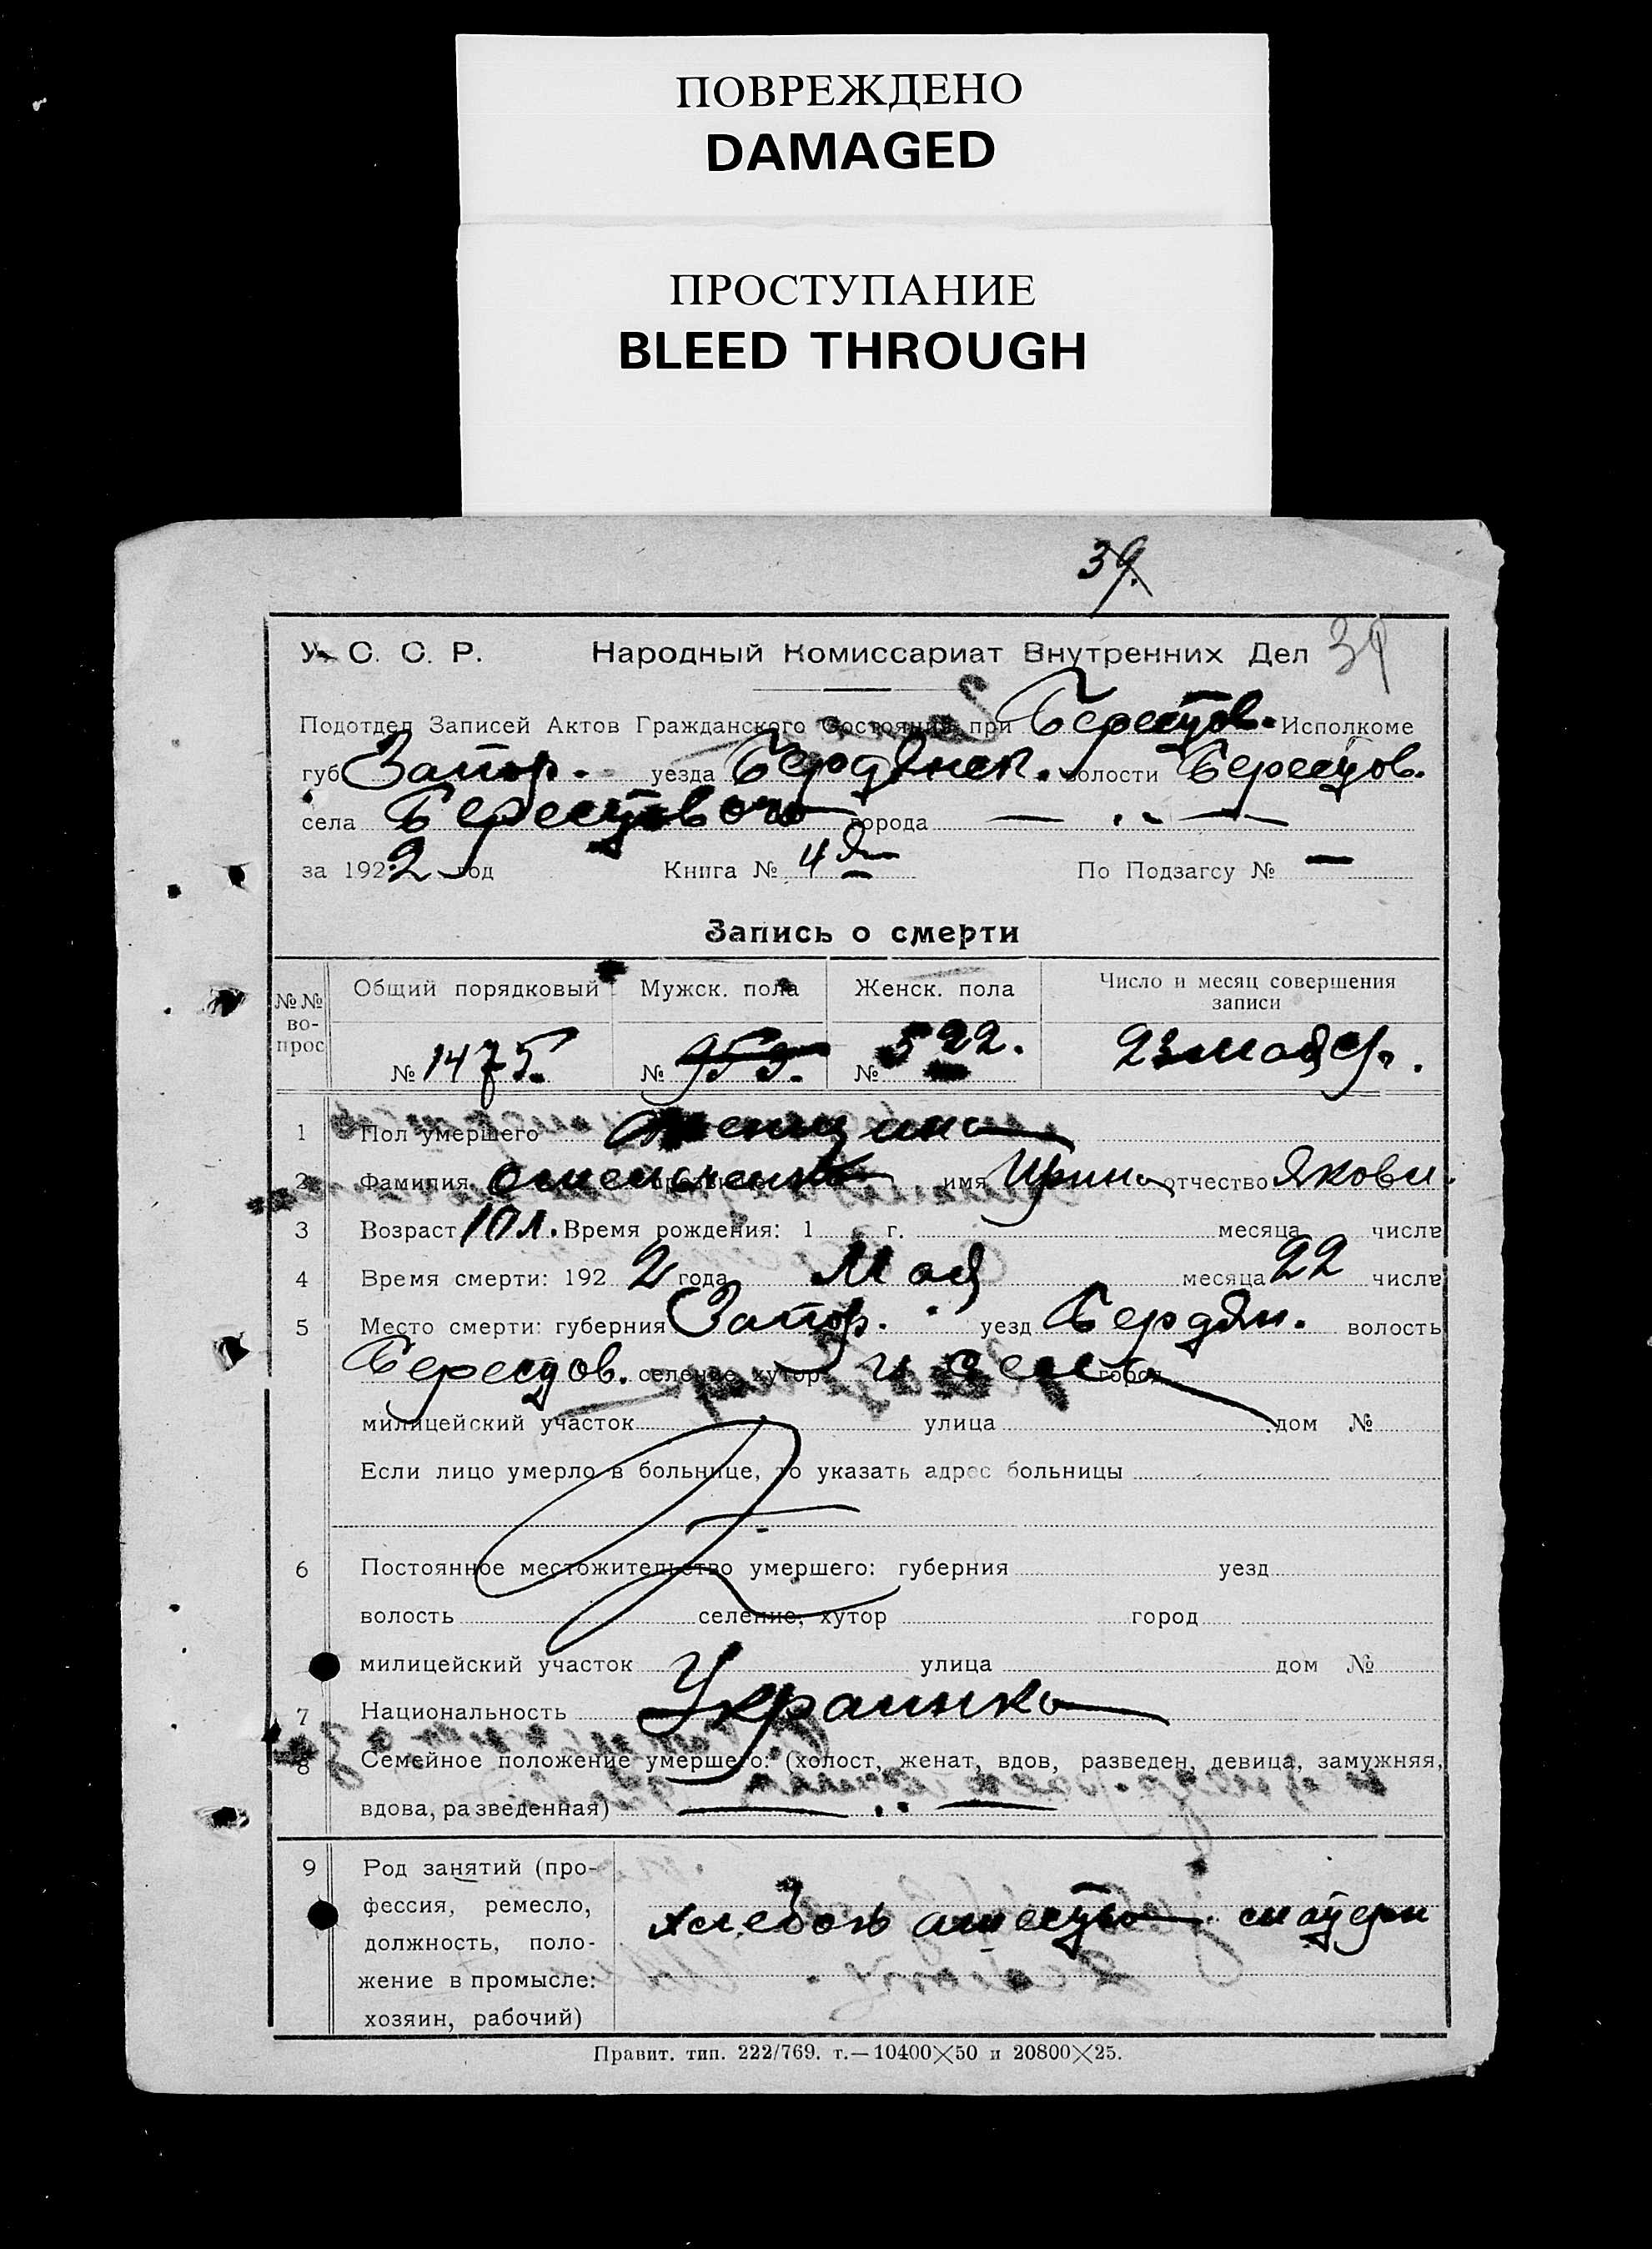 ПОВРЕЖДЕНО
DAMAGED
ПРОСТУПАНИЕ
BLEED THROUGH
39.
У. С. С. Р. Народный Комиссариат Внутренних Дел 39
Подотдел Записей Актов Гражданского Состояния при Берестов. Исполкоме
губ Запор. уезда Бердянск. волости Берестов.
села Берестового города — „ —
за 1922 год Книга № 4 По Подзагсу № —
Запись о смерти
№№ вопрос Общий порядковый Мужск. пола Женск. пола Число и месяц совершения записи
№ 1475. № 953. № 522. 23 мая
1 Пол умершего женщина
2 Фамилия Омельченко имя Ирина отчество Яковл.
3 Возраст 10 л. Время рождения: 1 г. месяца числа
4 Время смерти: 1922 года Мая месяца 22 числа
5 Место смерти: губерния Запор. уезд Бердян. волость
Берестов. селение, хутор и село город
милицейский участок улица дом №
Если лицо умерло в больнице, то указать адрес больницы
6 Постоянное местожительство умершего: губерния уезд
волость селение, хутор город
милицейский участок улица дом №
7 Национальность Украинка
8 Семейное положение умершего: (холост, женат, вдов, разведен, девица, замужняя,
вдова, разведенная) — „ —
9 Род занятий (про-
фессия, ремесло,
должность, поло-
жение в промысле:
хозяин, рабочий)
Правит. тип. 222/769. т.—10400×50 и 20800×25.